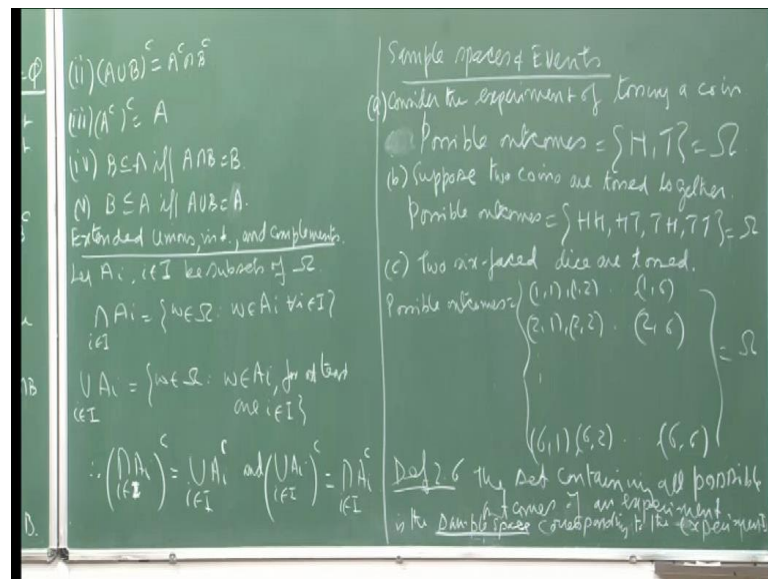 =Φ
(ii) (A∪B)ᶜ = Aᶜ∩Bᶜ
(iii) (Aᶜ)ᶜ = A
(iv) B⊆A iff A∩B=B.
(v) B⊆A iff A∪B=A.
Extended Unions, int., and complements.
Let Ai, i∈I be subsets of Ω.
∩ Ai = {w∈Ω: w∈Ai ∀i∈I}
i∈I
∪ Ai = {w∈Ω: w∈Ai, for at least
i∈I one i∈I}
∴ (∩Ai)ᶜ = ∪Aiᶜ and (∪Ai)ᶜ = ∩Aiᶜ
i∈I i∈I i∈I i∈I
Sample spaces & Events
(a) Consider the experiment of tossing a coin.
Possible outcomes = {H, T} = Ω
(b) Suppose two coins are tossed together.
Possible outcomes = {HH, HT, TH, TT} = Ω
(c) Two six-faced dice are tossed.
Possible outcomes = {(1,1),(1,2) .. (1,6)
(2,1),(2,2) .. (2,6)
(6,1)(6,2) .. (6,6)} = Ω
Def 2.6 The set containing all possible
outcomes of an experiment
is the sample space corresponding to the experiment.